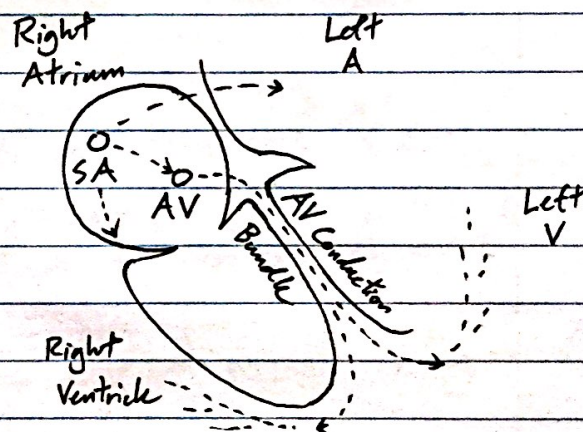 Right
Atrium
Left
A
SA
AV
AV Conduction
Bundle
Left
V
Right
Ventricle